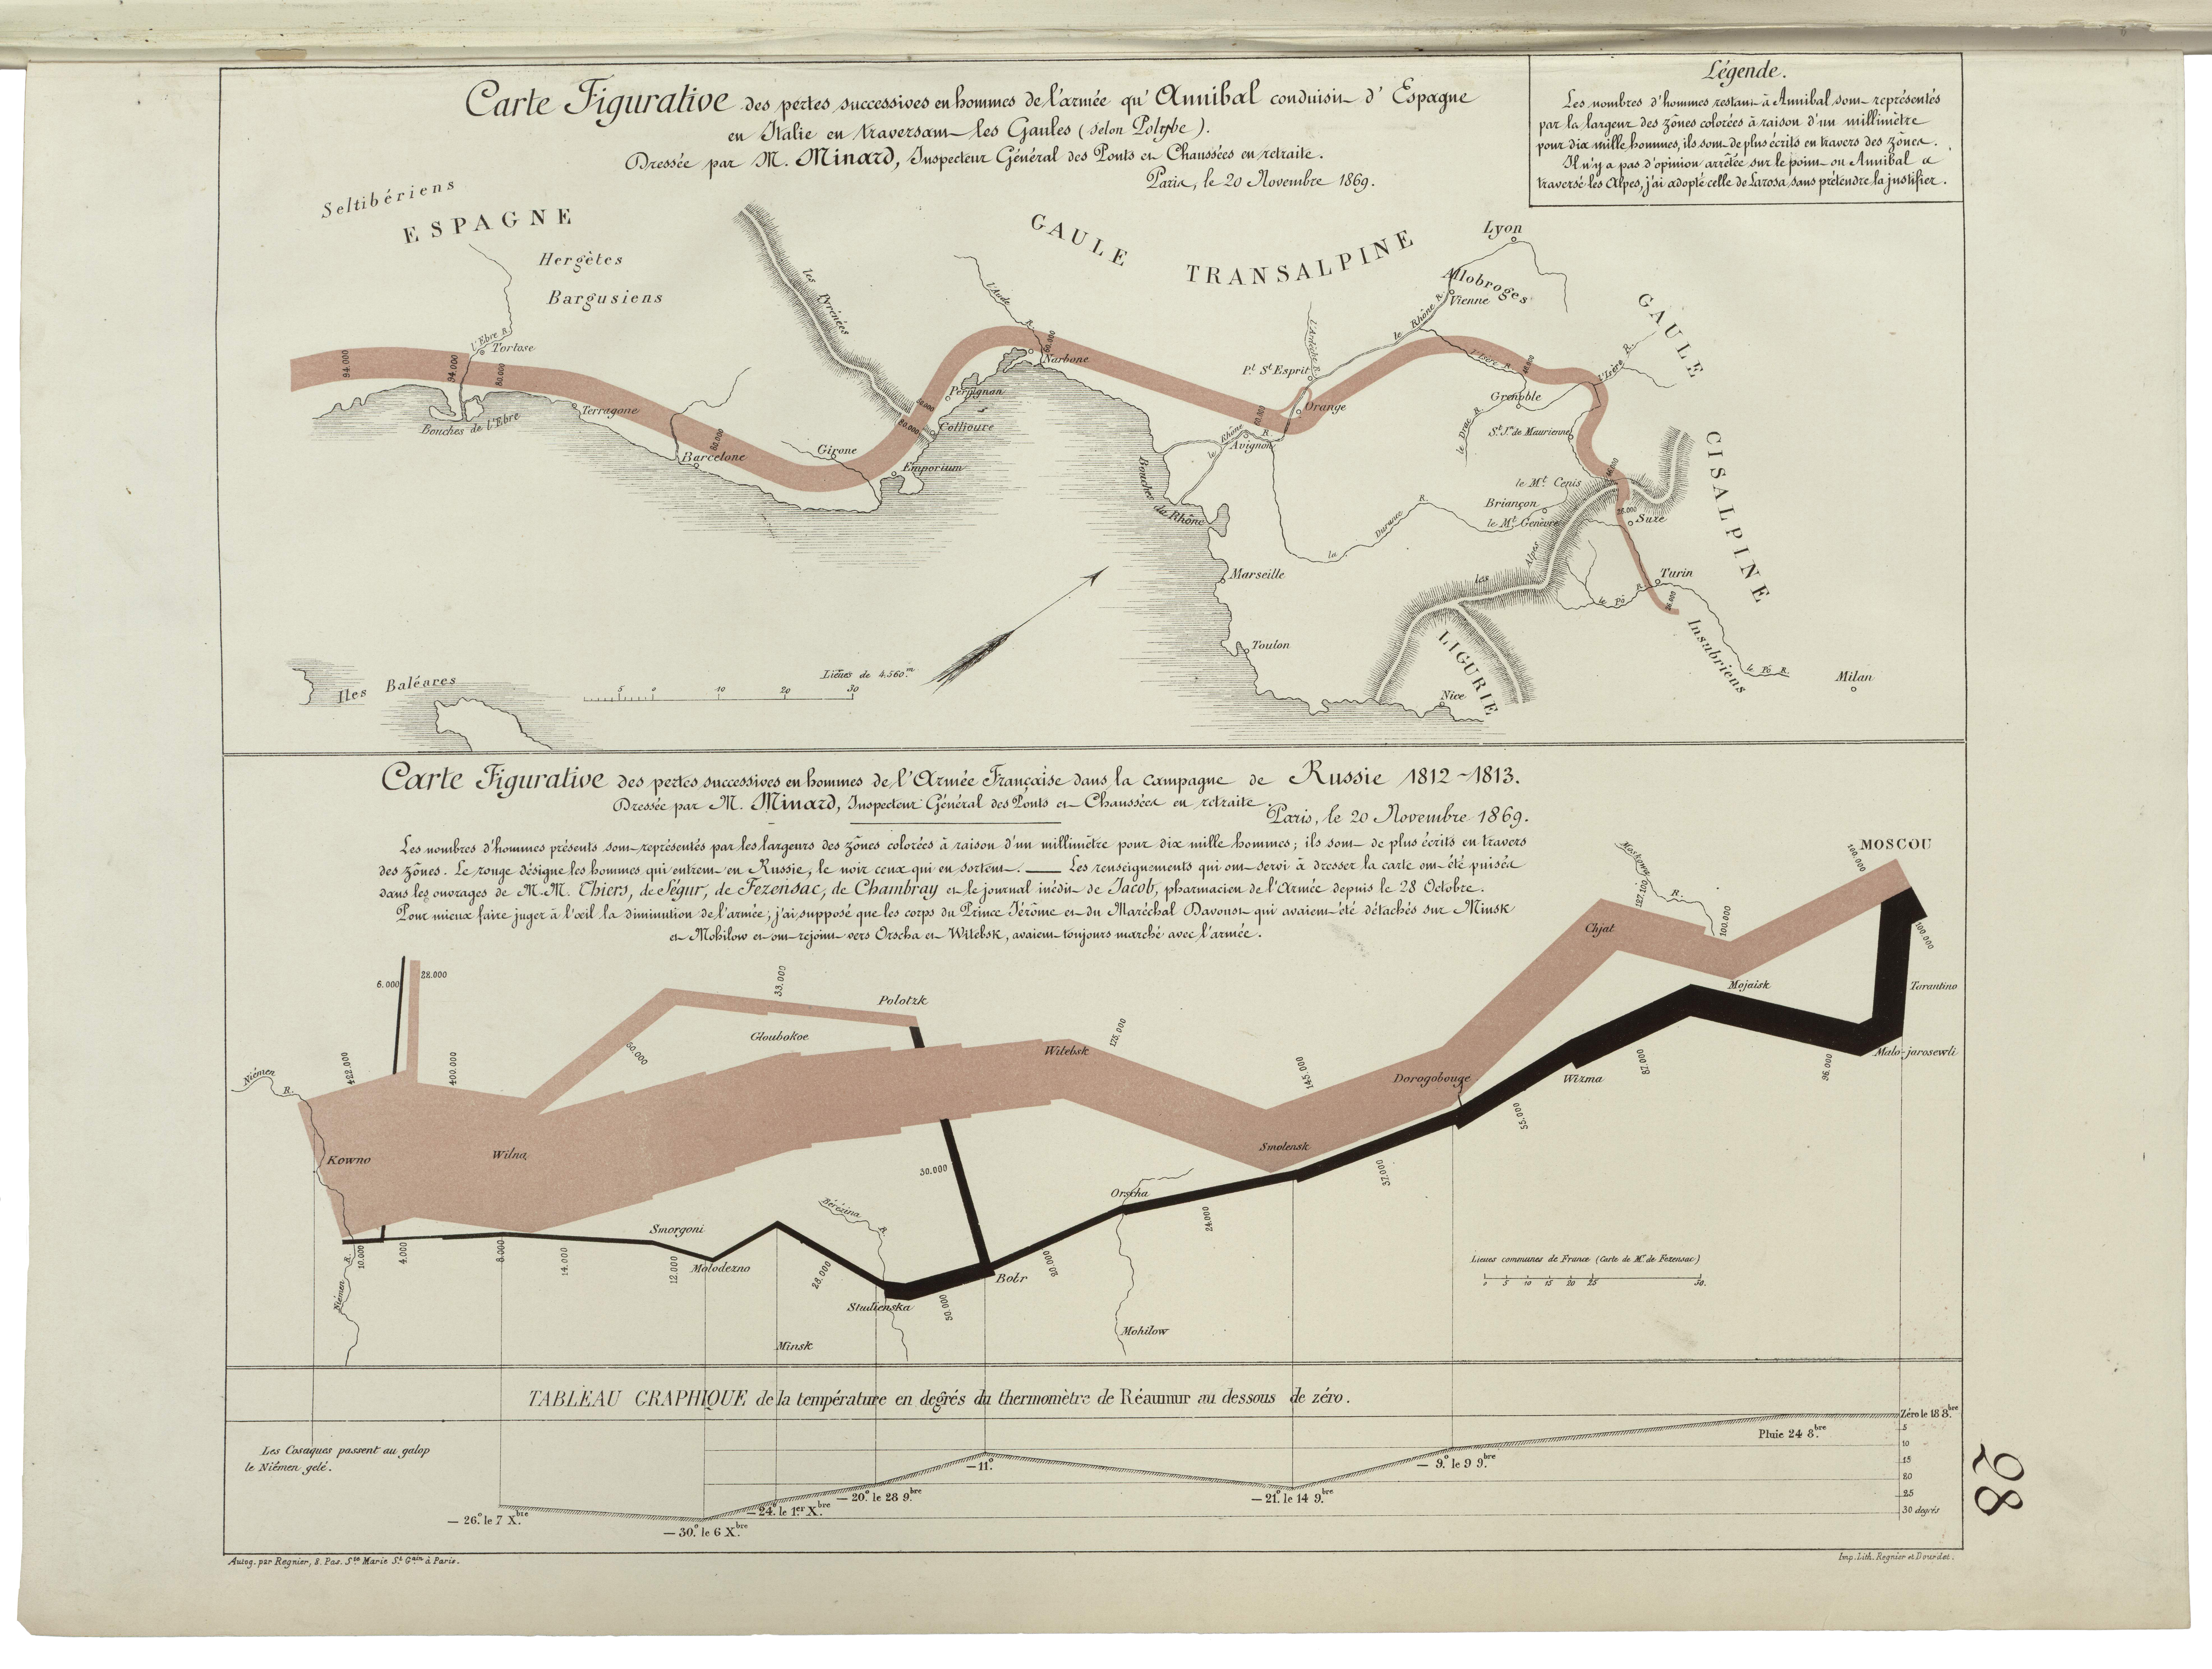 Carte Figurative des pertes successives en hommes de l'armée qu'Annibal conduisit d'Espagne
en Italie en traversant les Gaules (selon Polybe).
Dressée par M. Minard, Inspecteur Général des Ponts et Chaussées en retraite.
Paris, le 20 Novembre 1869.
Légende.
Les nombres d'hommes restant à Annibal sont représentés
par la largeur des zônes colorées à raison d'un millimètre
pour dix mille hommes, ils sont de plus écrits en travers des zônes.
Il n'y a pas d'opinion arrêtée sur le point où Annibal a
traversé les Alpes, j'ai adopté celle de Larosa, sans prétendre la justifier.
Seltibériens
ESPAGNE
Hergètes
Bargusiens
les Pyrénées
GAULE TRANSALPINE
Lyon
Allobroges
Vienne
GAULE CISALPINE
l'Aude R.
le Rhône R.
l'Ardèche R.
l'Ebre R.
Tortose
94.000
94.000
80.000
Bouches de l'Ebre
Terragone
Barcelone
Girone
Emporium
Perpignan
Collioure
60.000
Narbone
Pt. St. Esprit
Orange
le Rhône R.
Avignon
Bouches du Rhône
l'Isère R.
l'Isère R.
Grenoble
le Drac R.
St. Jn. de Maurienne
le Mt. Cenis
Briançon
le Mt. Genèvre
Suze
26.000
la Durance R.
les Alpes
Marseille
Turin
le Pô R.
26.000
Toulon
LIGURIE
Nice
Insubriens
le Pô R.
Milan
Iles Baléares
Lieues de 4.560.m
5 0 10 20 30
Carte Figurative des pertes successives en hommes de l'Armée Française dans la campagne de Russie 1812-1813.
Dressée par M. Minard, Inspecteur Général des Ponts et Chaussées en retraite.
Paris, le 20 Novembre 1869.
Les nombres d'hommes présents sont représentés par les largeurs des zônes colorées à raison d'un millimètre pour dix mille hommes; ils sont de plus écrits en travers
des zônes. Le rouge désigne les hommes qui entrent en Russie, le noir ceux qui en sortent. — Les renseignements qui ont servi à dresser la carte ont été puisés
dans les ouvrages de M.M. Thiers, de Ségur, de Fezensac, de Chambray et le journal inédit de Jacob, pharmacien de l'Armée depuis le 28 Octobre.
Pour mieux faire juger à l'œil la diminution de l'armée, j'ai supposé que les corps du Prince Jérôme et du Maréchal Davoust qui avaient été détachés sur Minsk
et Mohilow et ont rejoint vers Orscha et Witebsk, avaient toujours marché avec l'armée.
MOSCOU
100.000
Moskowa R.
127.100
100.000
Chjat
Mojaisk
100.000
Tarantino
Malo-jarosewli
6.000
22.000
33.000
Polotzk
Gloubokoe
60.000
Niémen R.
422.000
400.000
Witebsk
175.000
145.000
Dorogobouge
Wizma
87.000
96.000
55.000
Kowno
Wilna
Smolensk
37.000
30.000
Orscha
24.000
Smorgoni
Bérézina R.
10.000
4.000
8.000
14.000
12.000
Molodezno
28.000
Studienska
50.000
Bobr
20.000
Niémen R.
Minsk
Mohilow
Lieues communes de France (Carte de M. de Fezensac)
0 5 10 15 20 25 50.
TABLEAU GRAPHIQUE de la température en degrés du thermomètre de Réaumur au dessous de zéro.
Zéro le 18 8.bre
5
10
15
20
25
30 degrés
Pluie 24 8.bre
Les Cosaques passent au galop
le Niémen gelé.
— 9.° le 9 9.bre
— 11.°
— 21.° le 14 9.bre
— 20.° le 28 9.bre
— 24.° le 1.er X.bre
— 26.° le 7 X.bre
— 30.° le 6 X.bre
Autog. par Regnier, 8. Pas. Ste. Marie St. Gain à Paris.
Imp. Lith. Regnier et Dourdet.
28